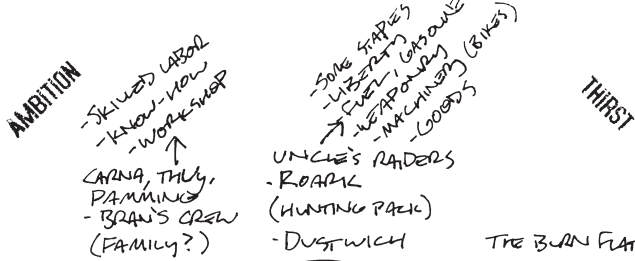 AMBITION
-SKILLED LABOR
-KNOW-HOW
-WORKSHOP
CARNA, THUY,
PAMMING
- BRAN'S CREW
(FAMILY?)
-SOME STAPLES
-LIBERTY
-FUEL, GASOLINE
-WEAPONRY
-MACHINERY (BIKES)
-GOODS
UNCLE'S RAIDERS
- ROARK
(HUNTING PACK)
- DUSTWICH
THIRST
THE BURN FLAT